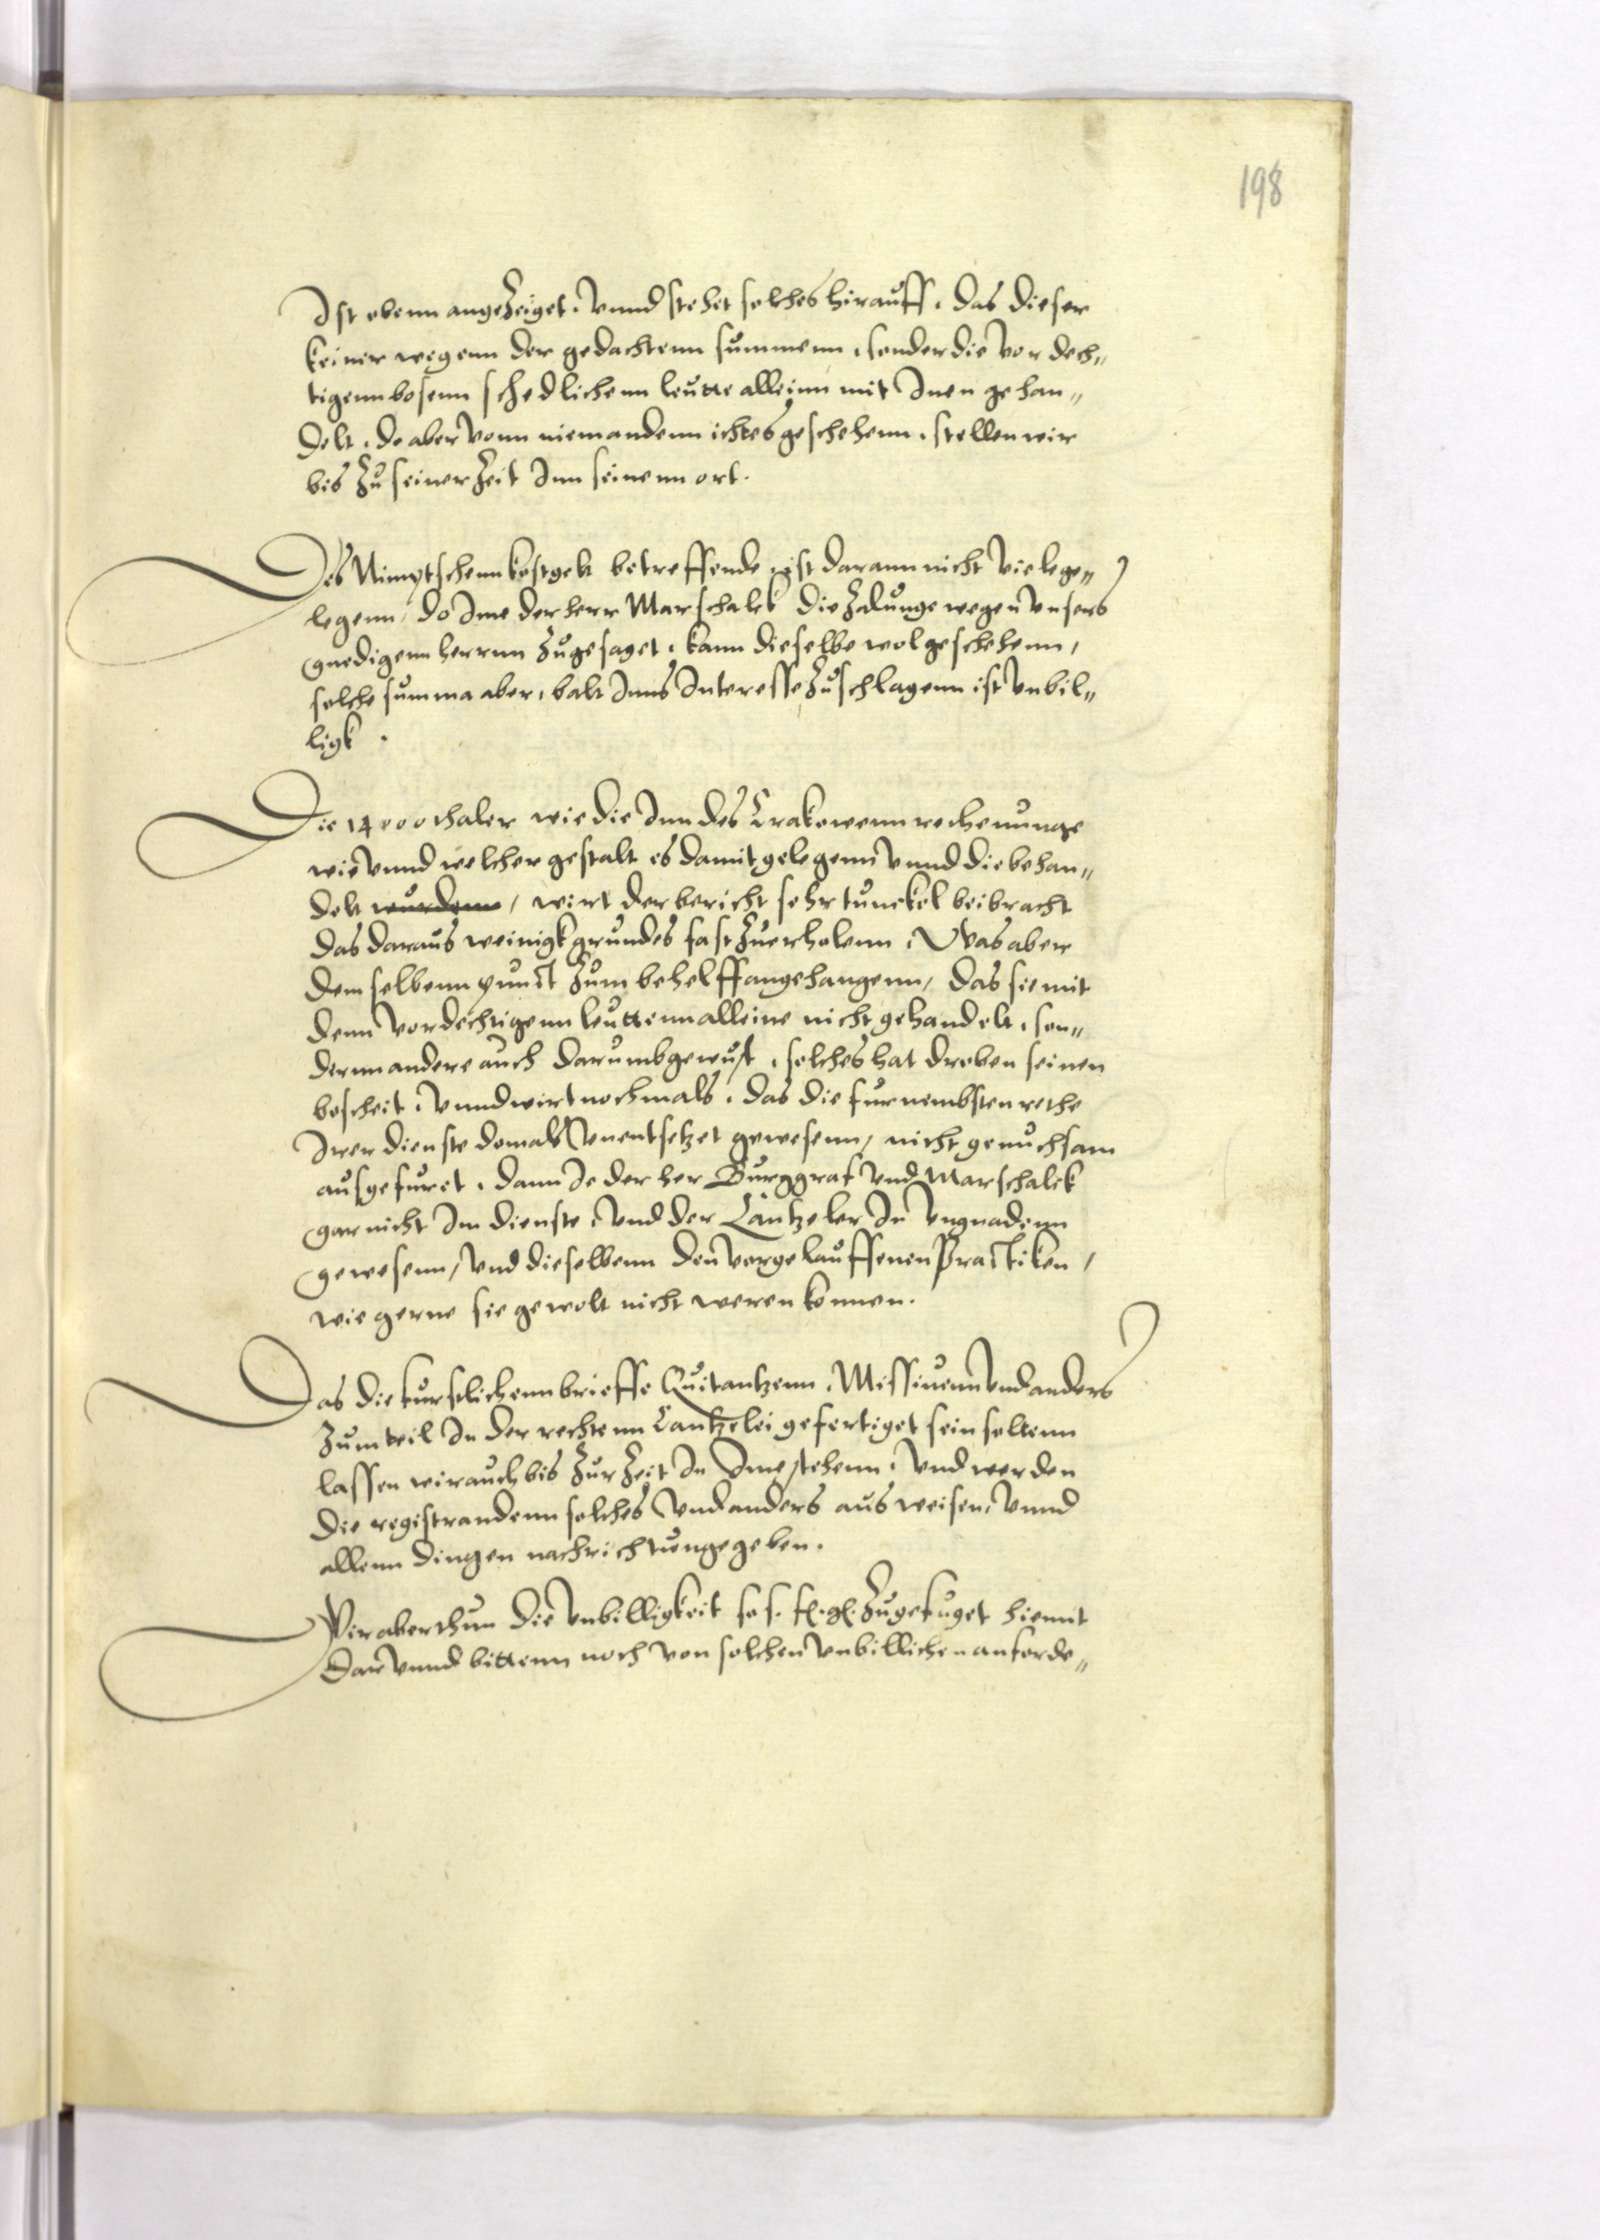 198
Ist obenn angezeiget, vnnd stehet solches hirauff, das dieser
keiner wegenn der gedachtenn summenn, sonder die vordech„
tigenn bosenn schedlichenn leutte alleinn mit Inen gehan„
delt, do aber vonn niemandenn ichtes geschehenn, stellen wir
bis zu seiner zeit Inn seinenn ort.
Des Nimptschenn kostgelt betreffende ist darann nicht viel ege„
legenn, do Ime der herr Marschalck die zalunge wegen vnsers
gnedigenn herrnn zugesaget, kann dieselbe wol geschehenn,
solche summa aber, balt Inns Interesse zuschlagenn ist vnbil„
ligk.
Die 14000 thaler wie die Inn des Crakowenn rechenunge
wie vnnd welcher gestalt es damit gelegenn vnnd die behan„
delt wurdenn, wirt der bericht sehr tunckel beibracht
das daraus weinigk grundes fast zuerholenn, Was aber
demselbenn punct zum behelff angehangenn, das sie mit
denn vordechtigenn leuttenn alleine nicht gehandelt, son„
dernn andere auch darumb gewust, solches hat droben seinen
bescheit, vnnd wirt nochmals, das die furnembsten rethe
Irer dienste domals vnentsetzet gewesenn, nicht genuchsam
ausgefuret, dann Je der her Burggraf vnd Marschalck
gar nicht Im dienste, vnd der Cantzeler In vngnadenn
gewesenn, vnd dieselbenn den vorgelauffenen Practiken,
wie gerne sie gewolt nicht weren konnen.
Das die furstlichenn brieffe Quitantzenn, Missiuenn vnd anders
zum teil In der rechtenn Cantzelei gefertiget sein soltenn
lassen wir auch bis zur zeit In Ime stehenn, vnd werden
die registrandenn solches vnd anders ausweisen, vnnd
allenn dingen nachrichtunge geben.
Wir aber thun die vnbilligkeit so s. f. g. zugefuget hiemit
dar vnnd bittenn noch von solchen vnbillichen anforde„